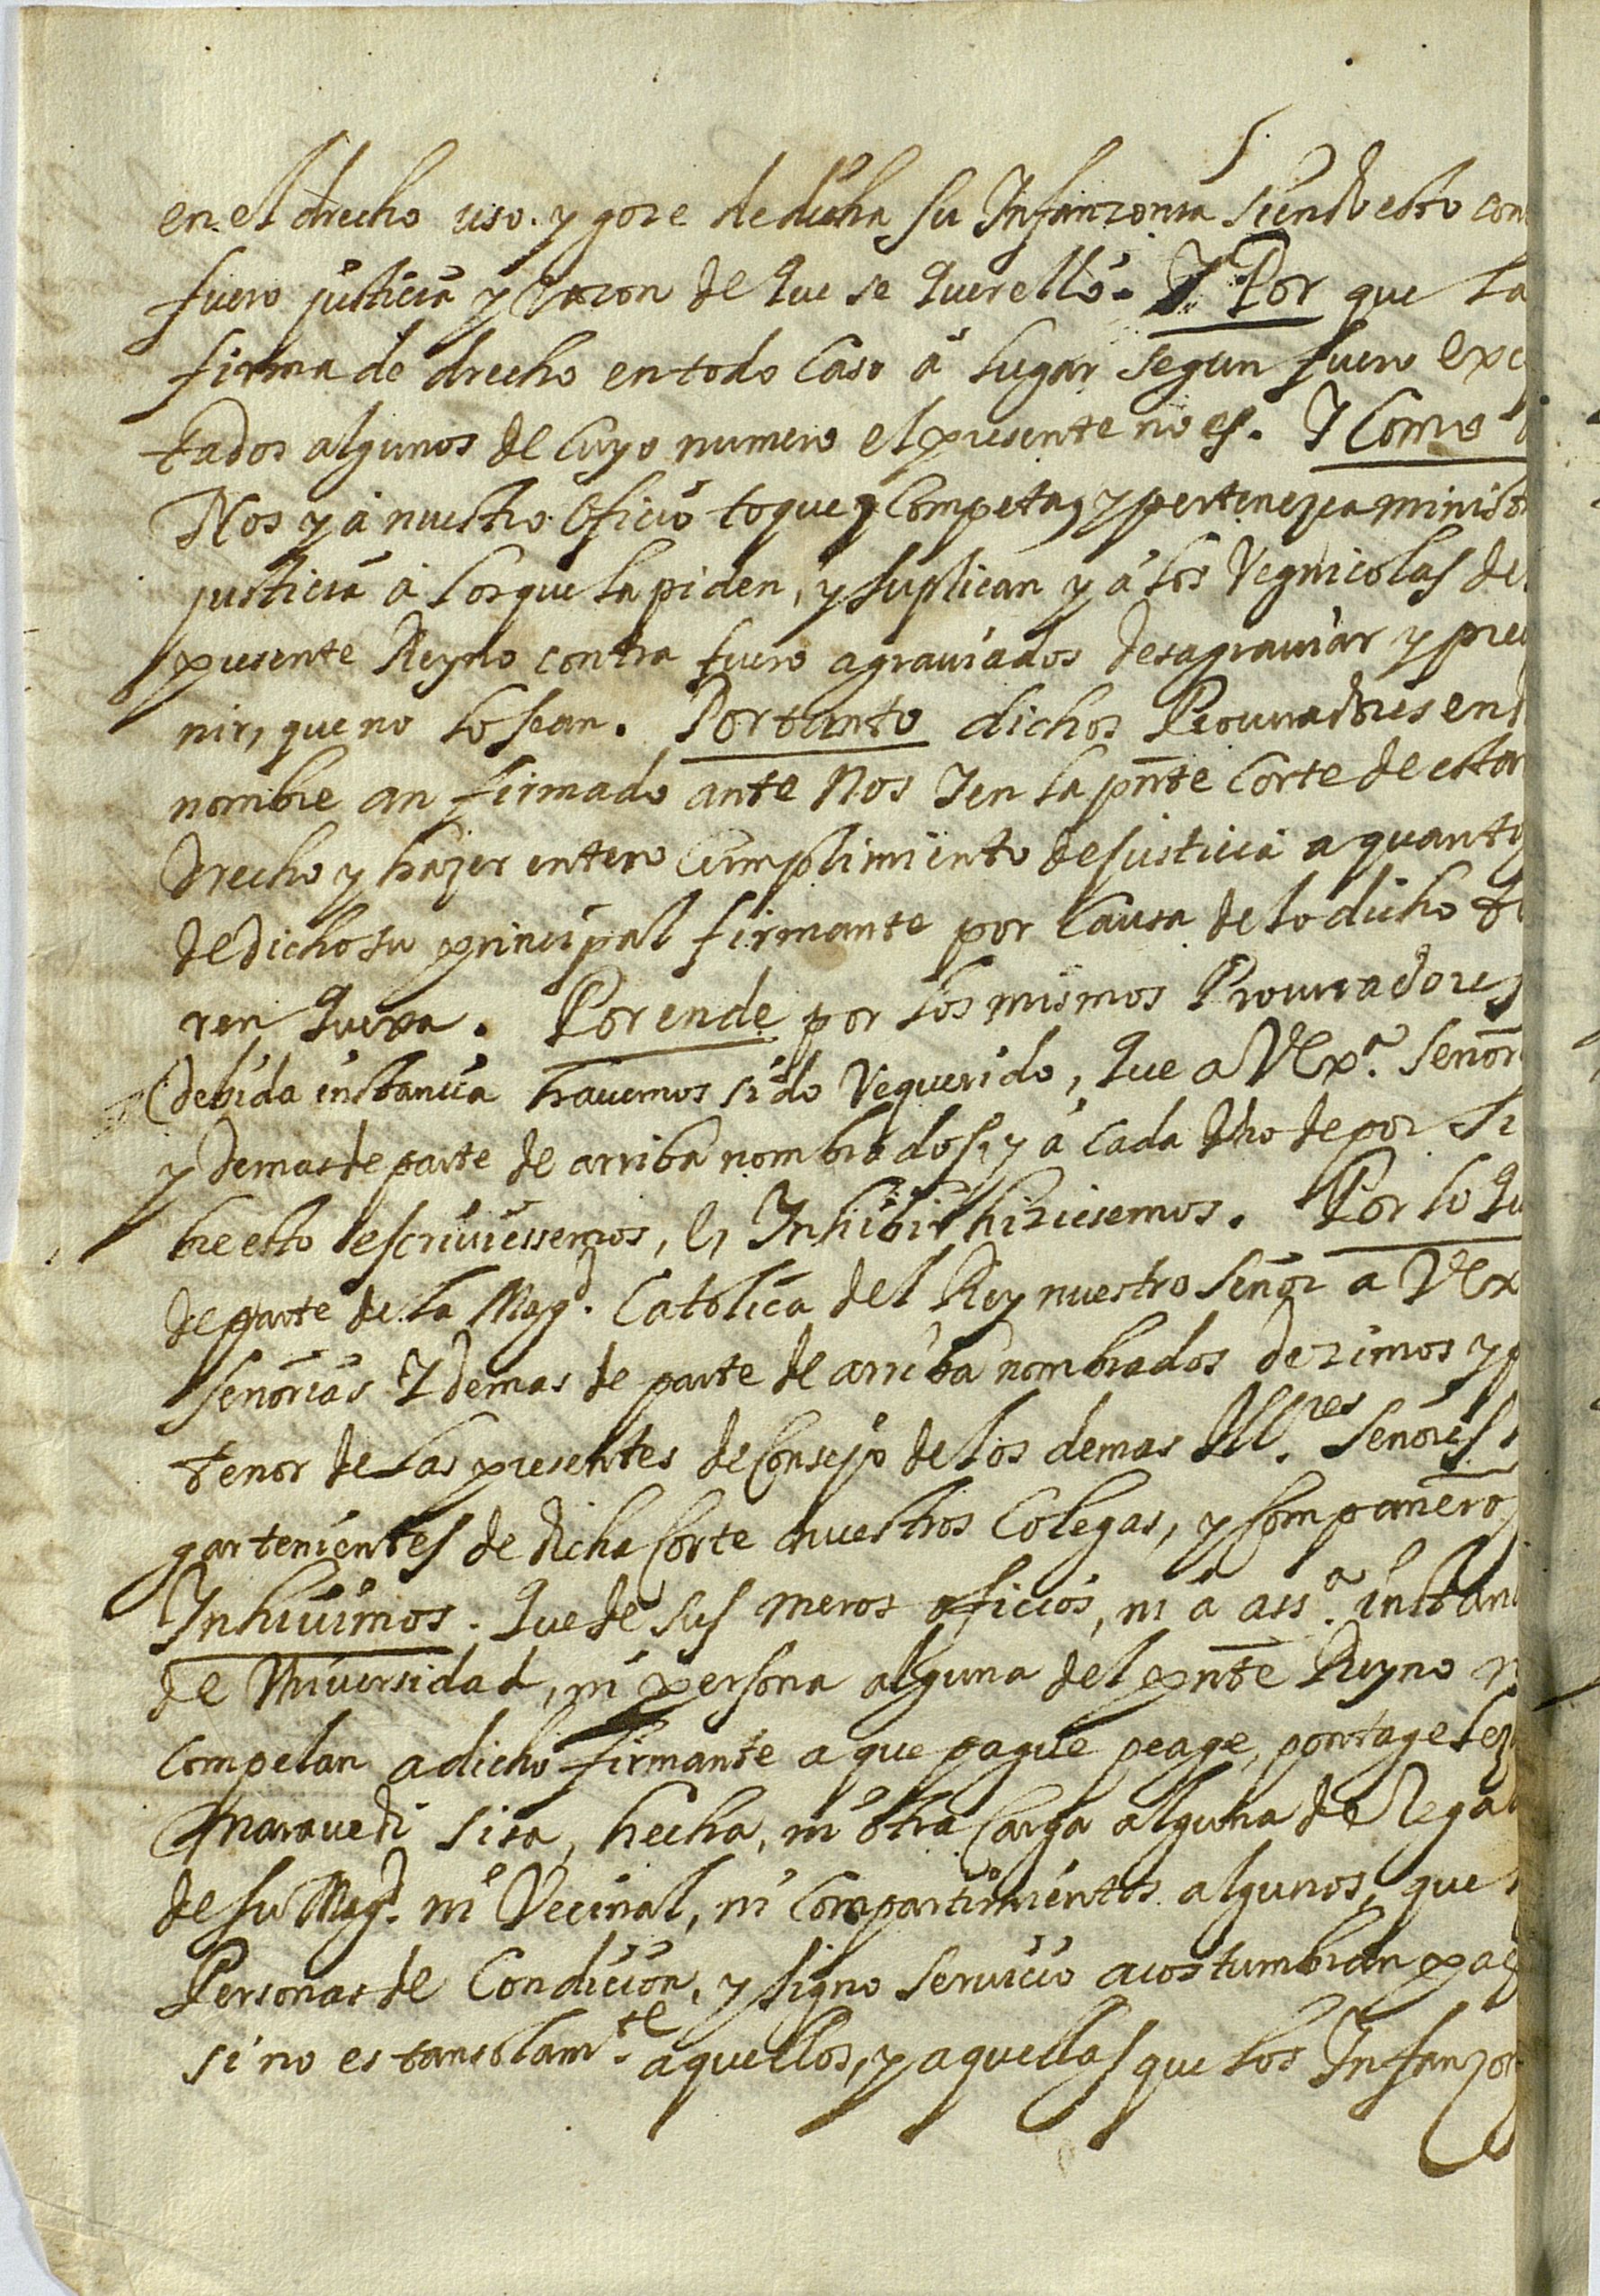 en el drecho uso. y goze de dicha su Infanzonia siendo esto con
fuero justicia y Razon de que se querelló. Y Por que la
firma de drecho en todo caso á lugar segun fuero exce
tados algunos de cuyo numero el presente no es. Y Como
Nos y á nuestro oficio toque, Competa, y pertenezca minist
justicia á los que la piden, y suplican y á los Regnicolas de
presente Reyno contra fuero agrauiados desagrauiar y pre
nir, que no lo sean. Portanto dichos Procuradores en
nombre an firmado ante Nos Y en la pñte Corte de estar
Drecho y hazer entero cumplimiento de justicia a quantos
de dicho su principal firmante por causa de lo dicho
ren quexa. Porende por los mismos Procuradores
debida instancia hauemos sido Requerido, que a VExª. Señor
y demas de parte de arriba nombrados, y á cada Uno de por si
bre esto escriuiessemos, e, Inhibir hiziesemos. Por lo qu
de parte de la Magd. Catolica del Rey nuestro Señor a VEx
Señorias Y demas de parte de arriba nombrados dezimos y p
tenor de las presentes de Consejo de los demas Illres. Señores
gartenientes de dicha Corte nuestros Colegas, y Compañeros
Inhiuimos. Que de sus meros oficios, ni á assª. instan
de Universidad, ni persona alguna del pñte Reyno n
compelan a dicho firmante a que pague peage, pontage lez
Marauedi sisa, hecha, ni otra Carga alguna de Rega
de su Magd. ni Vecinal, ni Compartimientos algunos, que
Personas de Condicion, y signo seruicio acostumbran pag
sino es tansolamte. aquellos, y aquellas que los Infanzon